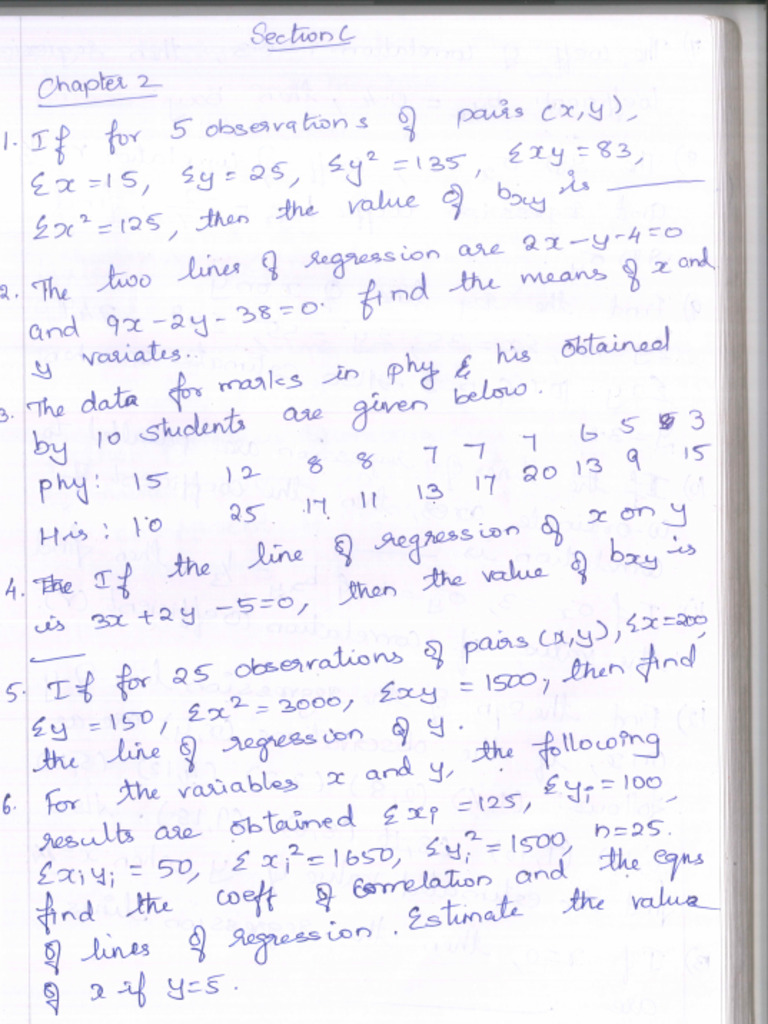 Section C
Chapter 2
1. If for 5 observations of pairs (x, y),
Σx = 15, Σy = 25, Σy² = 135, Σxy = 83,
Σx² = 125, then the value of bxy is ____
2. The two lines of regression are 2x - y - 4 = 0
and 9x - 2y - 38 = 0. find the means of x and
y variates.
3. The data for marks in phy & his obtained
by 10 students are given below.
phy: 15 12 8 8 7 7 7 6 5 3
His: 10 25 17 11 13 17 20 13 9 15
4. If the line of regression of x on y
is 3x + 2y - 5 = 0, then the value of bxy is
____
5. If for 25 observations of pairs (x, y), Σx = 200,
Σy = 150, Σx² = 2000, Σxy = 1500, then find
the line of regression of y.
6. For the variables x and y, the following
results are obtained Σxi = 125, Σyi = 100,
Σxiyi = 50, Σxi² = 1650, Σyi² = 1500, n = 25.
find the coeff of Correlation and the eqns
of lines of regression. Estimate the value
of x if y = 5.